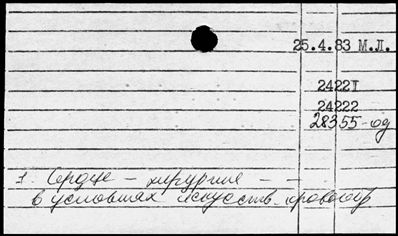 25.4.83 М.Л.
24221
24222
28355-од
1 Сердце - хирургия - -
в условиях искусств. кровообр